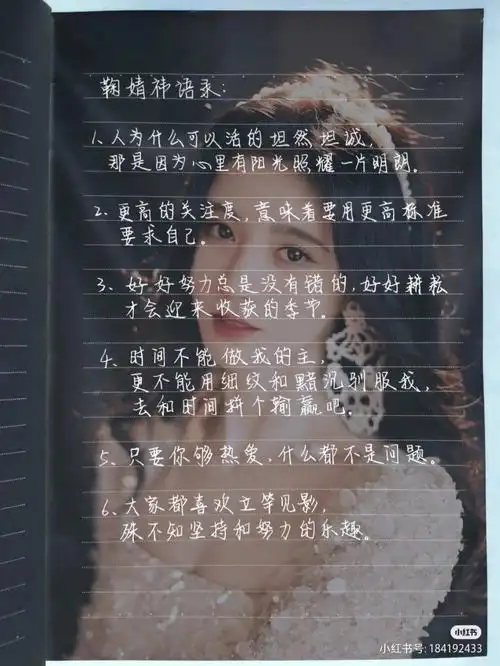 鞠婧祎语录:
1、人为什么可以活的坦然坦诚,
那是因为心里有阳光照耀一片明朗。
2、更高的关注度,意味着要用更高标准
要求自己。
3、好好努力总是没有错的,好好耕耘
才会迎来收获的季节。
4、时间不能做我的主,
更不能用细纹和黯沉驯服我,
去和时间拼个输赢吧。
5、只要你够热爱,什么都不是问题。
6、大家都喜欢立竿见影,
殊不知坚持和努力的乐趣。
小红书
小红书号: 184192433